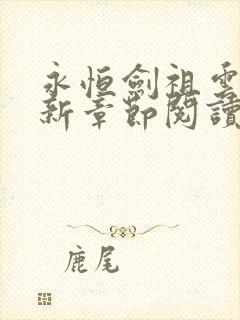 永恒劍祖雲
新章節閱讀
鹿尾